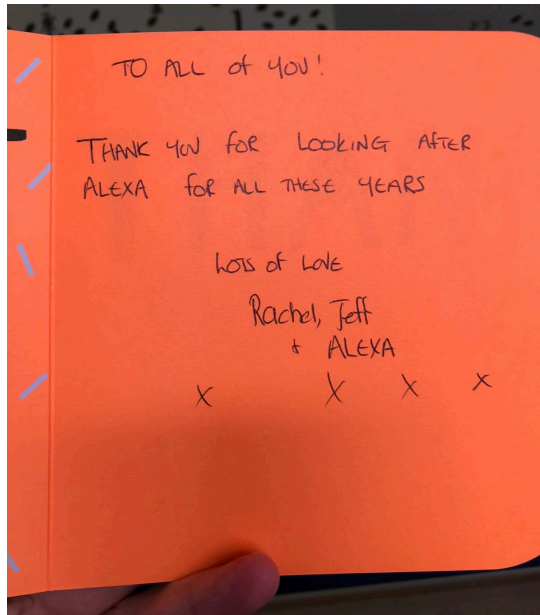 TO ALL of YOU!
THANK YOU FOR LOOKING AFTER
ALEXA FOR ALL THESE YEARS
LOTS OF LOVE
Rachel, Jeff
+ ALEXA
X X X X